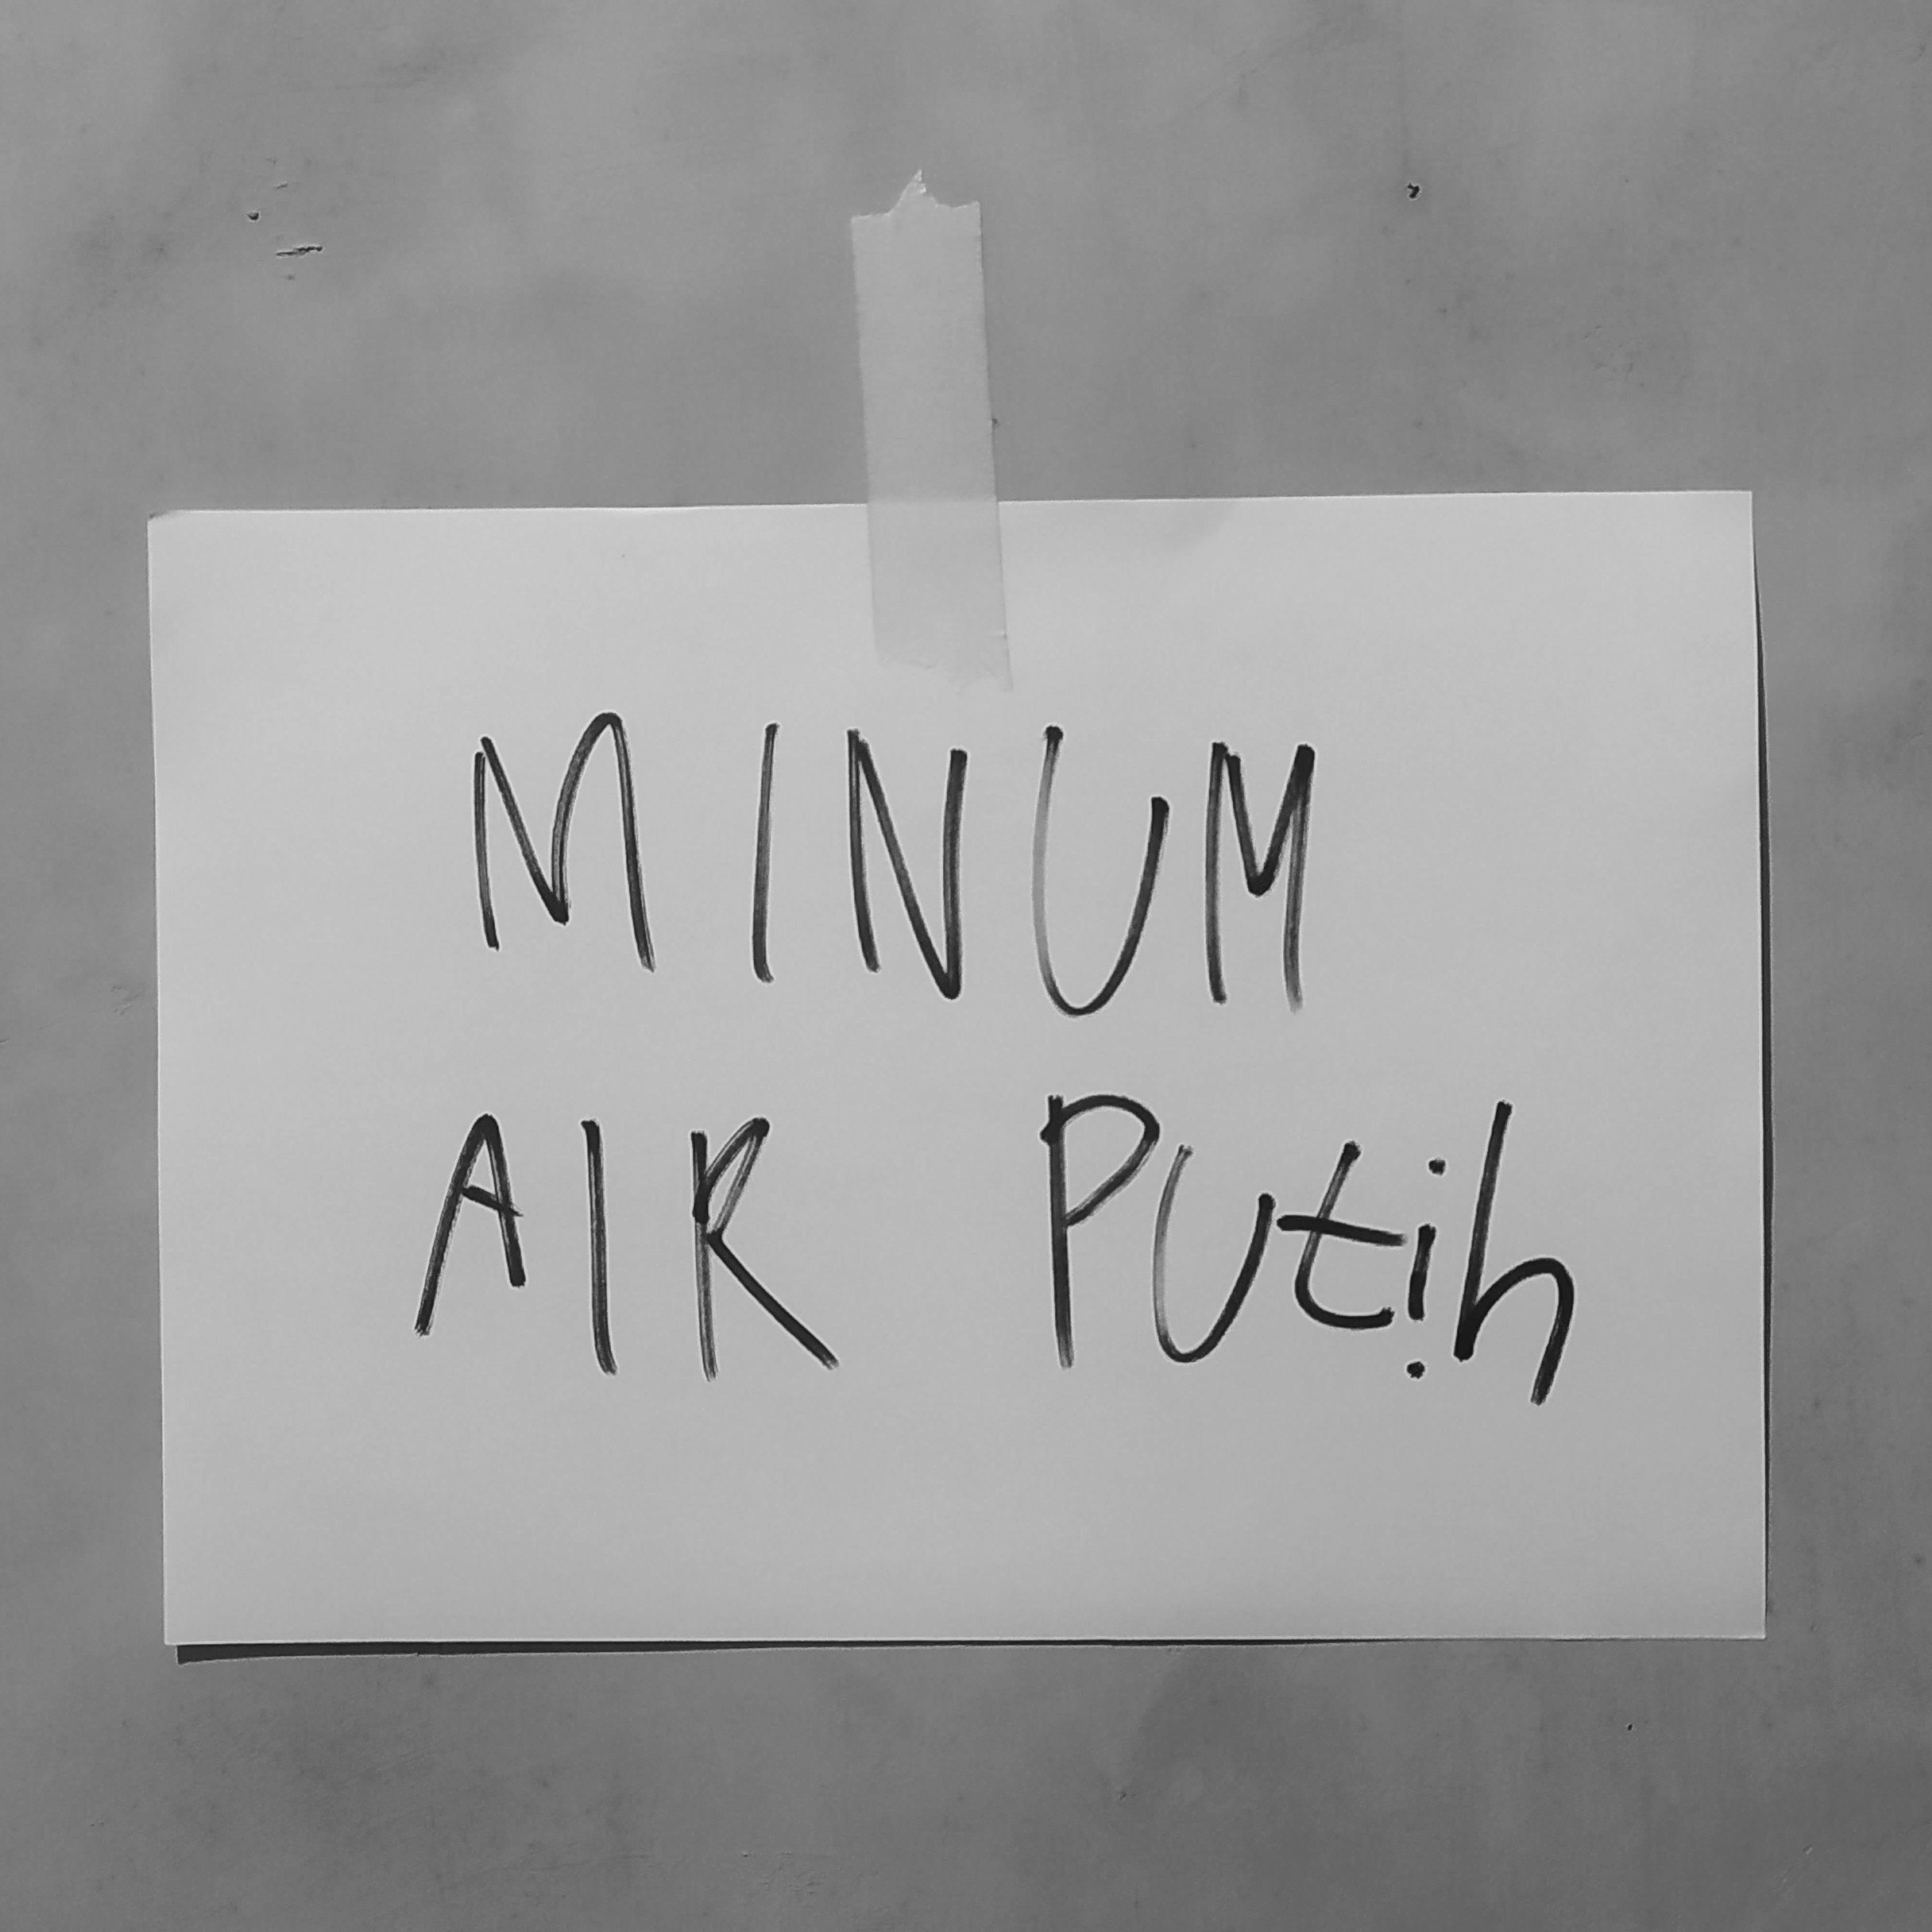 MINUM
AIR PUtih